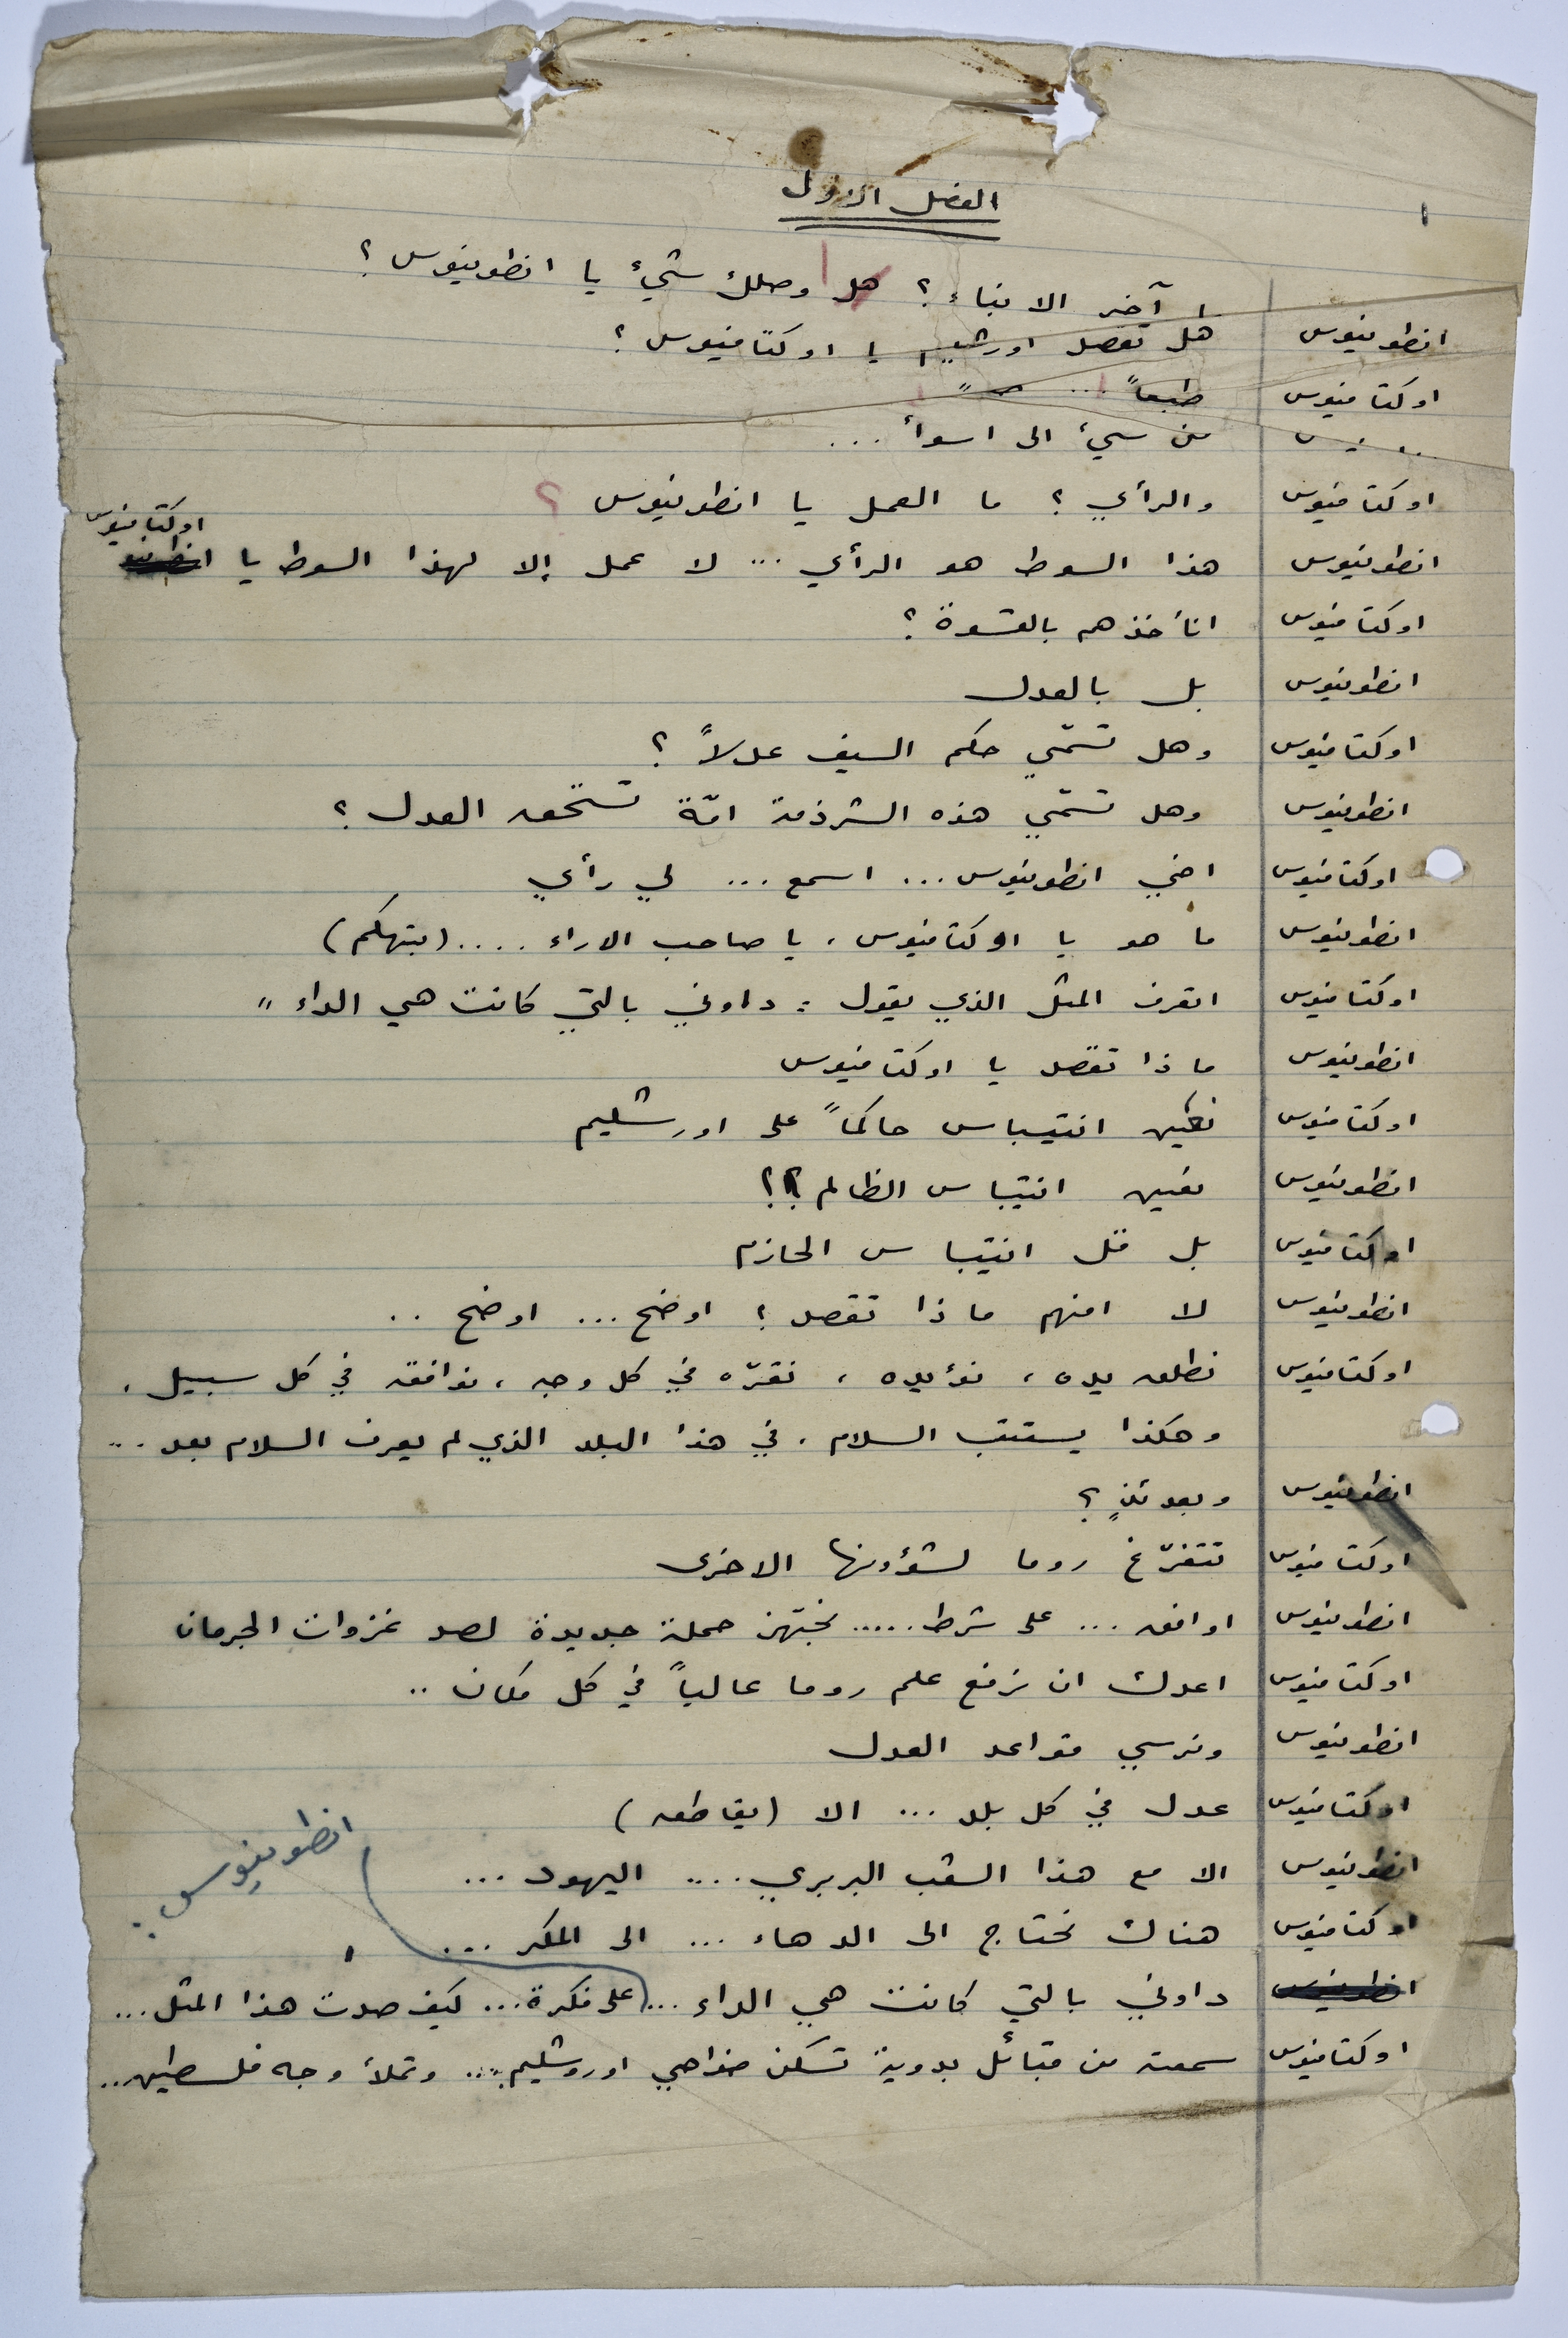 الفصل الاول
آخر الانباء ؟ هل وصلك شيءٌ يا انطونيوس ؟
انطونيوس هل تقصد اورشليم يا اوكتافيوس ؟
اوكتافيوس طبعاً ...
من سيءٍ الى اسوأ ...
اوكتافيوس والرأي ؟ ما العمل يا انطونيوس ؟
اوكتافيوس
انطونيوس هذا السوط هو الرأي ... لا عمل إلا لهذا السوط يا
اوكتافيوس انأخذهم بالقسوة ؟
انطونيوس بل بالعدل
اوكتافيوس وهل تسمّي حكم السيف عدلاً ؟
انطونيوس وهل تسمّي هذه الشرذمة امّة تستحق العدل ؟
اوكتافيوس اخي انطونيوس ... اسمع ... لي رأي
انطونيوس ما هو يا اوكتافيوس ، يا صاحب الاراء .... (بتهكم)
اوكتافيوس اتعرف المثل الذي يقول : داوني بالتي كانت هي الداء "
انطونيوس ماذا تقصد يا اوكتافيوس
اوكتافيوس نعين انتيباس حاكماً على اورشليم
انطونيوس نعين انتيباس الظالم ؟؟
اوكتافيوس بل قل انتيباس الحازم
انطونيوس لا افهم ماذا تقصد ؟ اوضح ... اوضح ..
اوكتافيوس نطلق يده ، نؤيده ، نقرّه في كل وجه ، نوافقه في كل سبيل ،
وهكذا يستتب السلام . في هذا البلد الذي لم يعرف السلام بعد ...
انطونيوس وبعدئذٍ ؟
اوكتافيوس تتفرّغ روما لشؤونها الاخرى
انطونيوس اوافق ... على شرط ..... نجهز حملة جديدة لصد غزوات الجرمان
اوكتافيوس اعدك ان نرفع علم روما عالياً في كل مكان ..
انطونيوس ونرسي قواعد العدل
اوكتافيوس عدل في كل بلد ... الا (يقاطعه)
انطونيوس الا مع هذا الشعب البربري .... اليهود ...
اوكتافيوس هناك نحتاج الى الدهاء ... الى المكر ...
انطونيوس :
انطونيوس داوني بالتي كانت هي الداء ... على فكرة ... كيف صدت هذا المثل ...
اوكتافيوس سمعته من قبائل بدوية تسكن ضواحي اوروشليم .... وتملأ وجه فلسطين ...